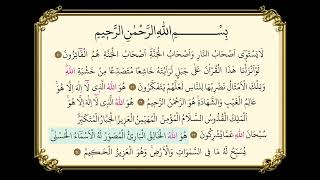 بِسْمِ اللهِ الرَّحْمٰنِ الرَّحِيْمِ
لَا يَسْتَوِىْٓ اَصْحٰبُ النَّارِ وَاَصْحٰبُ الْجَنَّةِ اَصْحٰبُ الْجَنَّةِ هُمُ الْفَآئِزُوْنَ
لَوْ اَنْزَلْنَا هٰذَا الْقُرْاٰنَ عَلٰى جَبَلٍ لَّرَاَيْتَهٗ خَاشِعًا مُّتَصَدِّعًا مِّنْ خَشْيَةِ اللهِ
وَتِلْكَ الْاَمْثَالُ نَضْرِبُهَا لِلنَّاسِ لَعَلَّهُمْ يَتَفَكَّرُوْنَ هُوَ اللهُ الَّذِىْ لَآ اِلٰهَ اِلَّا هُوَ
عٰلِمُ الْغَيْبِ وَالشَّهَادَةِ هُوَ الرَّحْمٰنُ الرَّحِيْمُ هُوَ اللهُ الَّذِىْ لَآ اِلٰهَ اِلَّا هُوَ
اَلْمَلِكُ الْقُدُّوْسُ السَّلٰمُ الْمُؤْمِنُ الْمُهَيْمِنُ الْعَزِيْزُ الْجَبَّارُ الْمُتَكَبِّرُ
سُبْحٰنَ اللهِ عَمَّا يُشْرِكُوْنَ هُوَ اللهُ الْخَالِقُ الْبَارِئُ الْمُصَوِّرُ لَهُ الْاَسْمَآءُ الْحُسْنٰى
يُسَبِّحُ لَهٗ مَا فِى السَّمٰوٰتِ وَالْاَرْضِ وَهُوَ الْعَزِيْزُ الْحَكِيْمُ